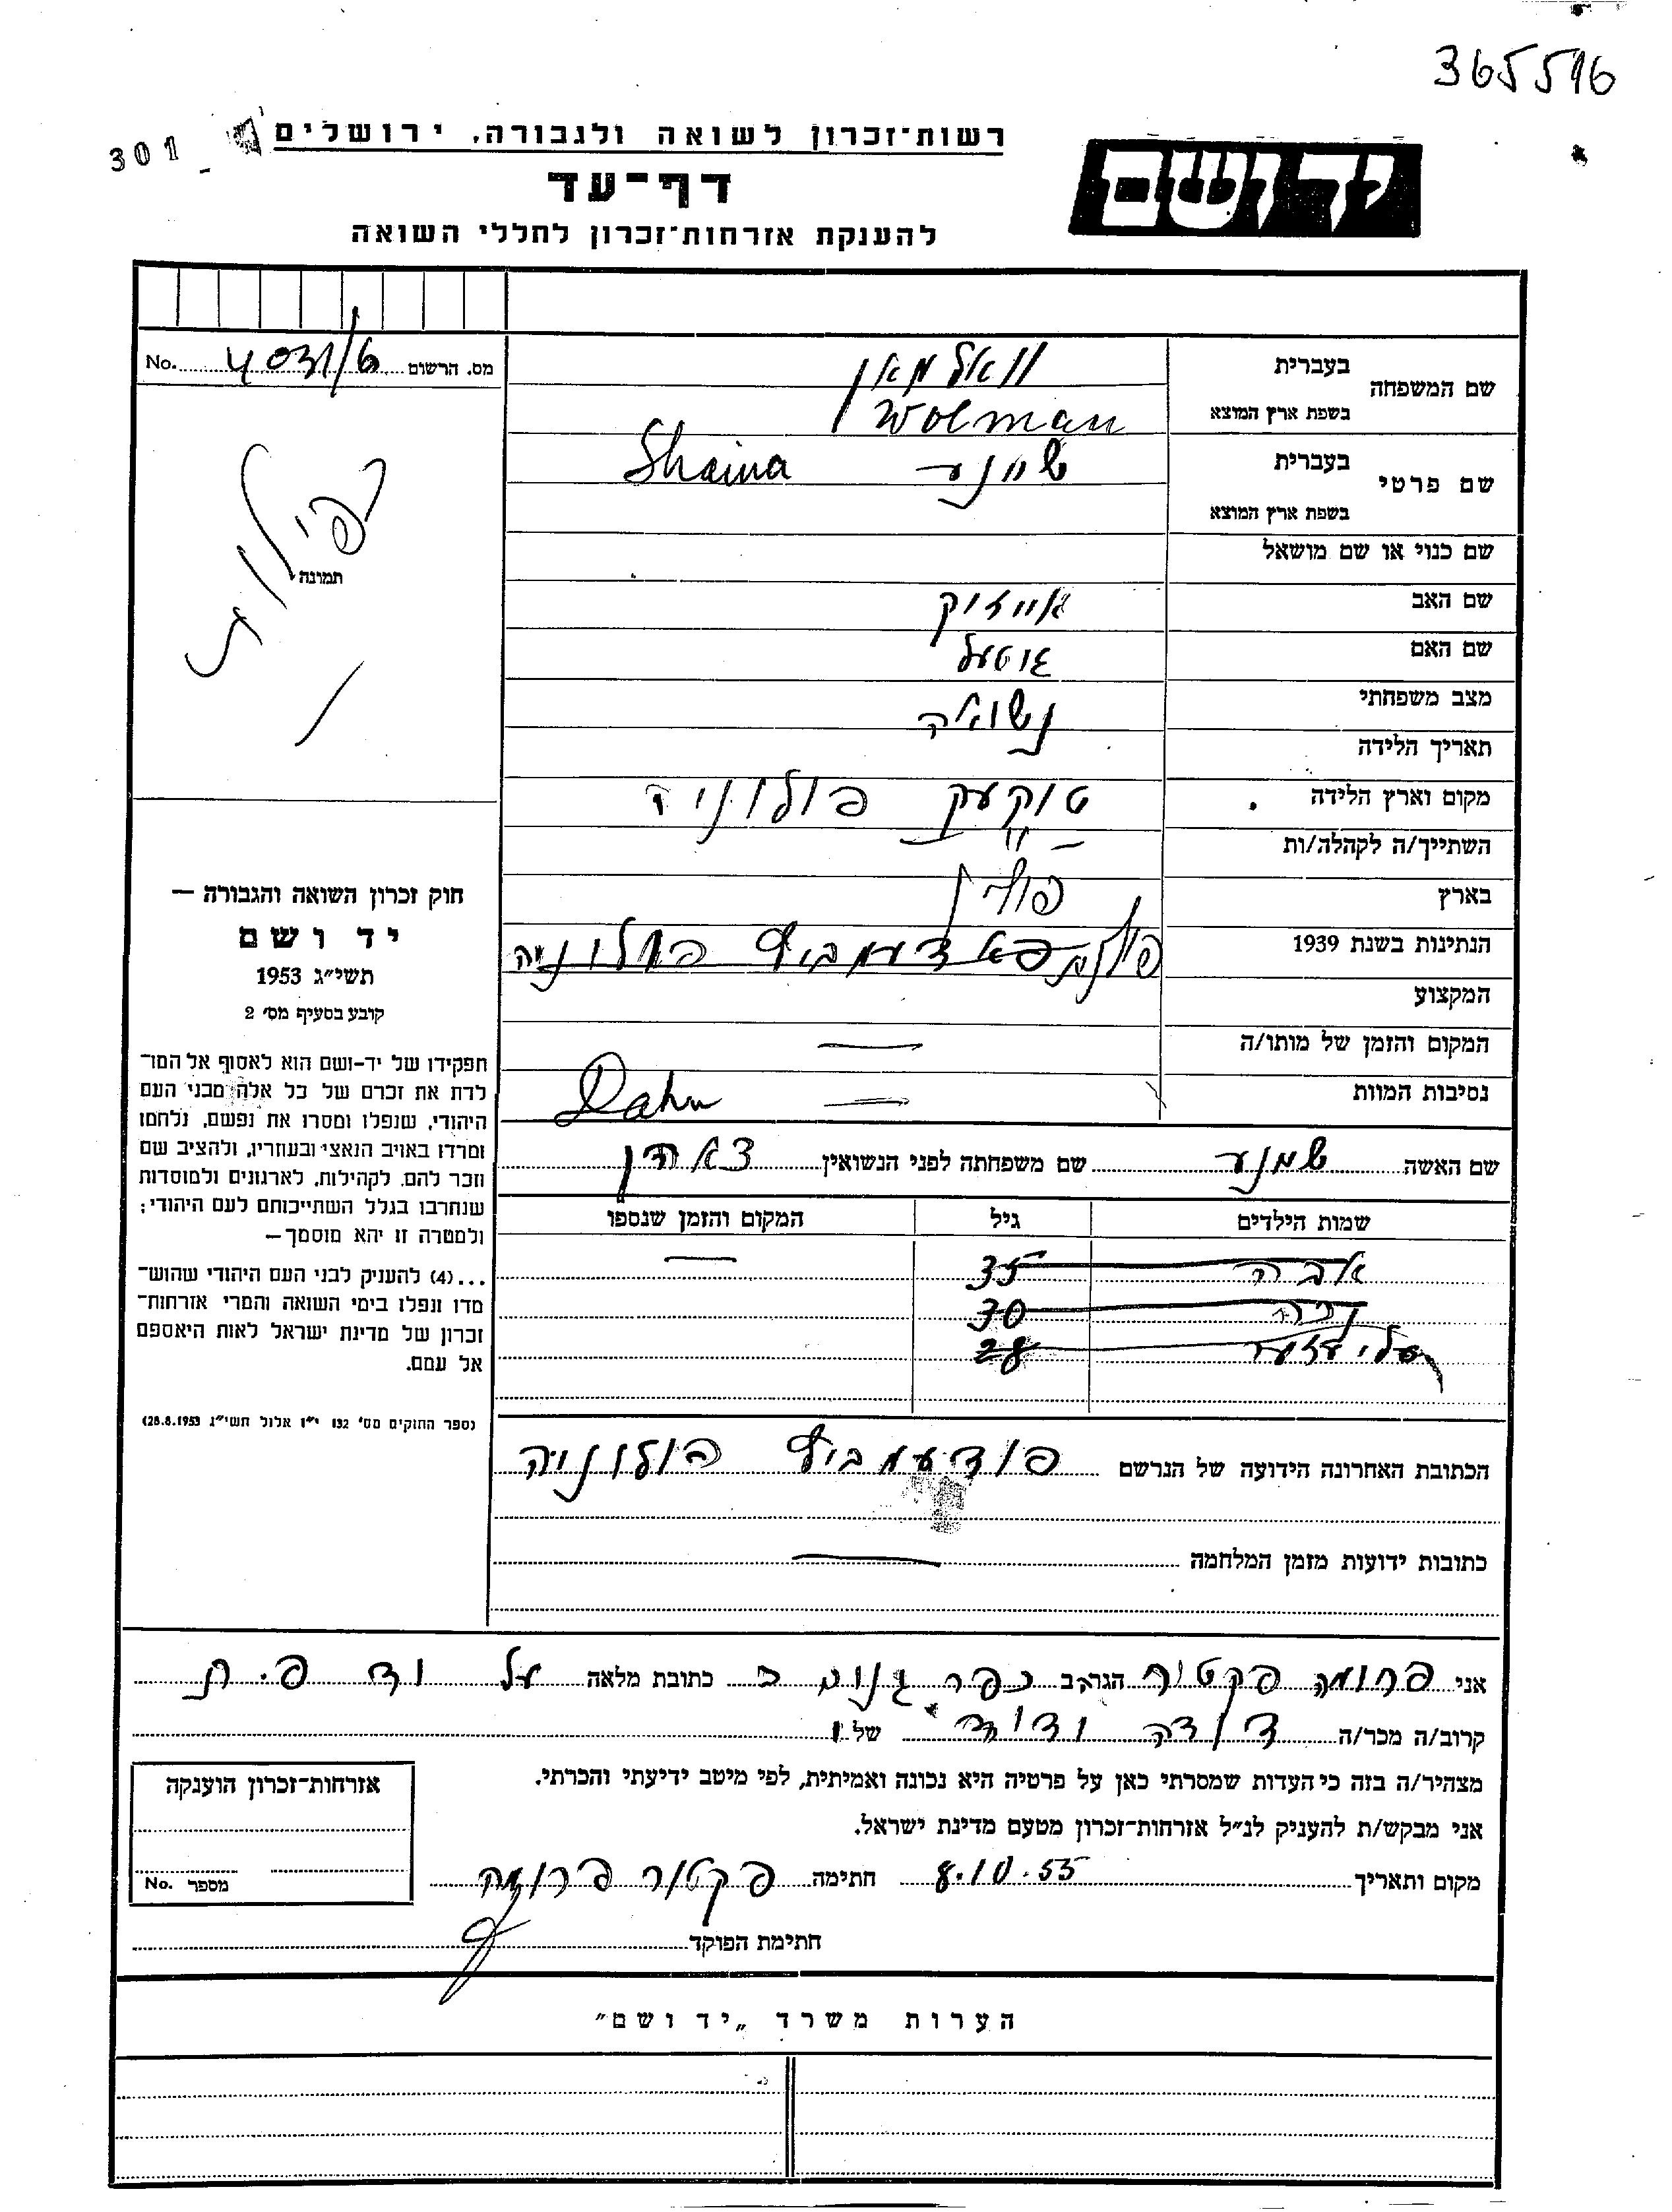 365516
301
רשות־זכרון לשואה ולגבורה, ירושלים
יד ושם
דף־עד
להענקת אזרחות־זכרון לחללי השואה
שם המשפחה בעברית וואלמאן
בשפת ארץ המוצא Wolman
שם פרטי בעברית שיינע Shaina
בשפת ארץ המוצא
שם כנוי או שם מושאל
שם האב אייזוק
שם האם גוטעל
מצב משפחתי נשואה
תאריך הלידה
מקום וארץ הלידה פולוניה
השתייך/ה לקהלה/ות — " —
בארץ פולין
הנתינות בשנת 1939 פולוניה
המקצוע
המקום והזמן של מותו/ה —
נסיבות המוות — Dahn
שם האשה שיינע שם משפחתה לפני הנשואין דאהן
שמות הילדים גיל המקום והזמן שנספו
35 —
30
28
הכתובת האחרונה הידועה של הנרשם פולוניה
כתובות ידועות מזמן המלחמה —
מס. הרשום 4031/6 No.
תמונה
חוק זכרון השואה והגבורה —
יד ושם
תשי״ג 1953
קובע בסעיף מס׳ 2
תפקידו של יד-ושם הוא לאסוף אל המו־
לדת את זכרם של כל אלה מבני העם
היהודי, שנפלו ומסרו את נפשם, נלחמו
ומרדו באויב הנאצי ובעוזריו, ולהציב שם
וזכר להם, לקהילות, לארגונים ולמוסדות
שנחרבו בגלל השתייכותם לעם היהודי;
ולמטרה זו יהא מוסמך —
...(4) להעניק לבני העם היהודי שהוש־
מדו ונפלו בימי השואה והמרי אזרחות־
זכרון של מדינת ישראל לאות היאספם
אל עמם.
(ספר החוקים מס׳ 132 י״ז אלול תשי״ג 28.8.1953)
אני פרומה פקטור הגר/ב כפר גנים ב כתובת מלאה על יד פ.ת
קרוב/ה מכר/ה של
מצהיר/ה בזה כי העדות שמסרתי כאן על פרטיה היא נכונה ואמיתית, לפי מיטב ידיעתי והכרתי.
אני מבקש/ת להעניק לנ״ל אזרחות־זכרון מטעם מדינת ישראל.
מקום ותאריך 8.10.55 חתימה פקטור פרומה
חתימת הפוקד
אזרחות־זכרון הוענקה
מספר No.
הערות משרד „יד ושם״